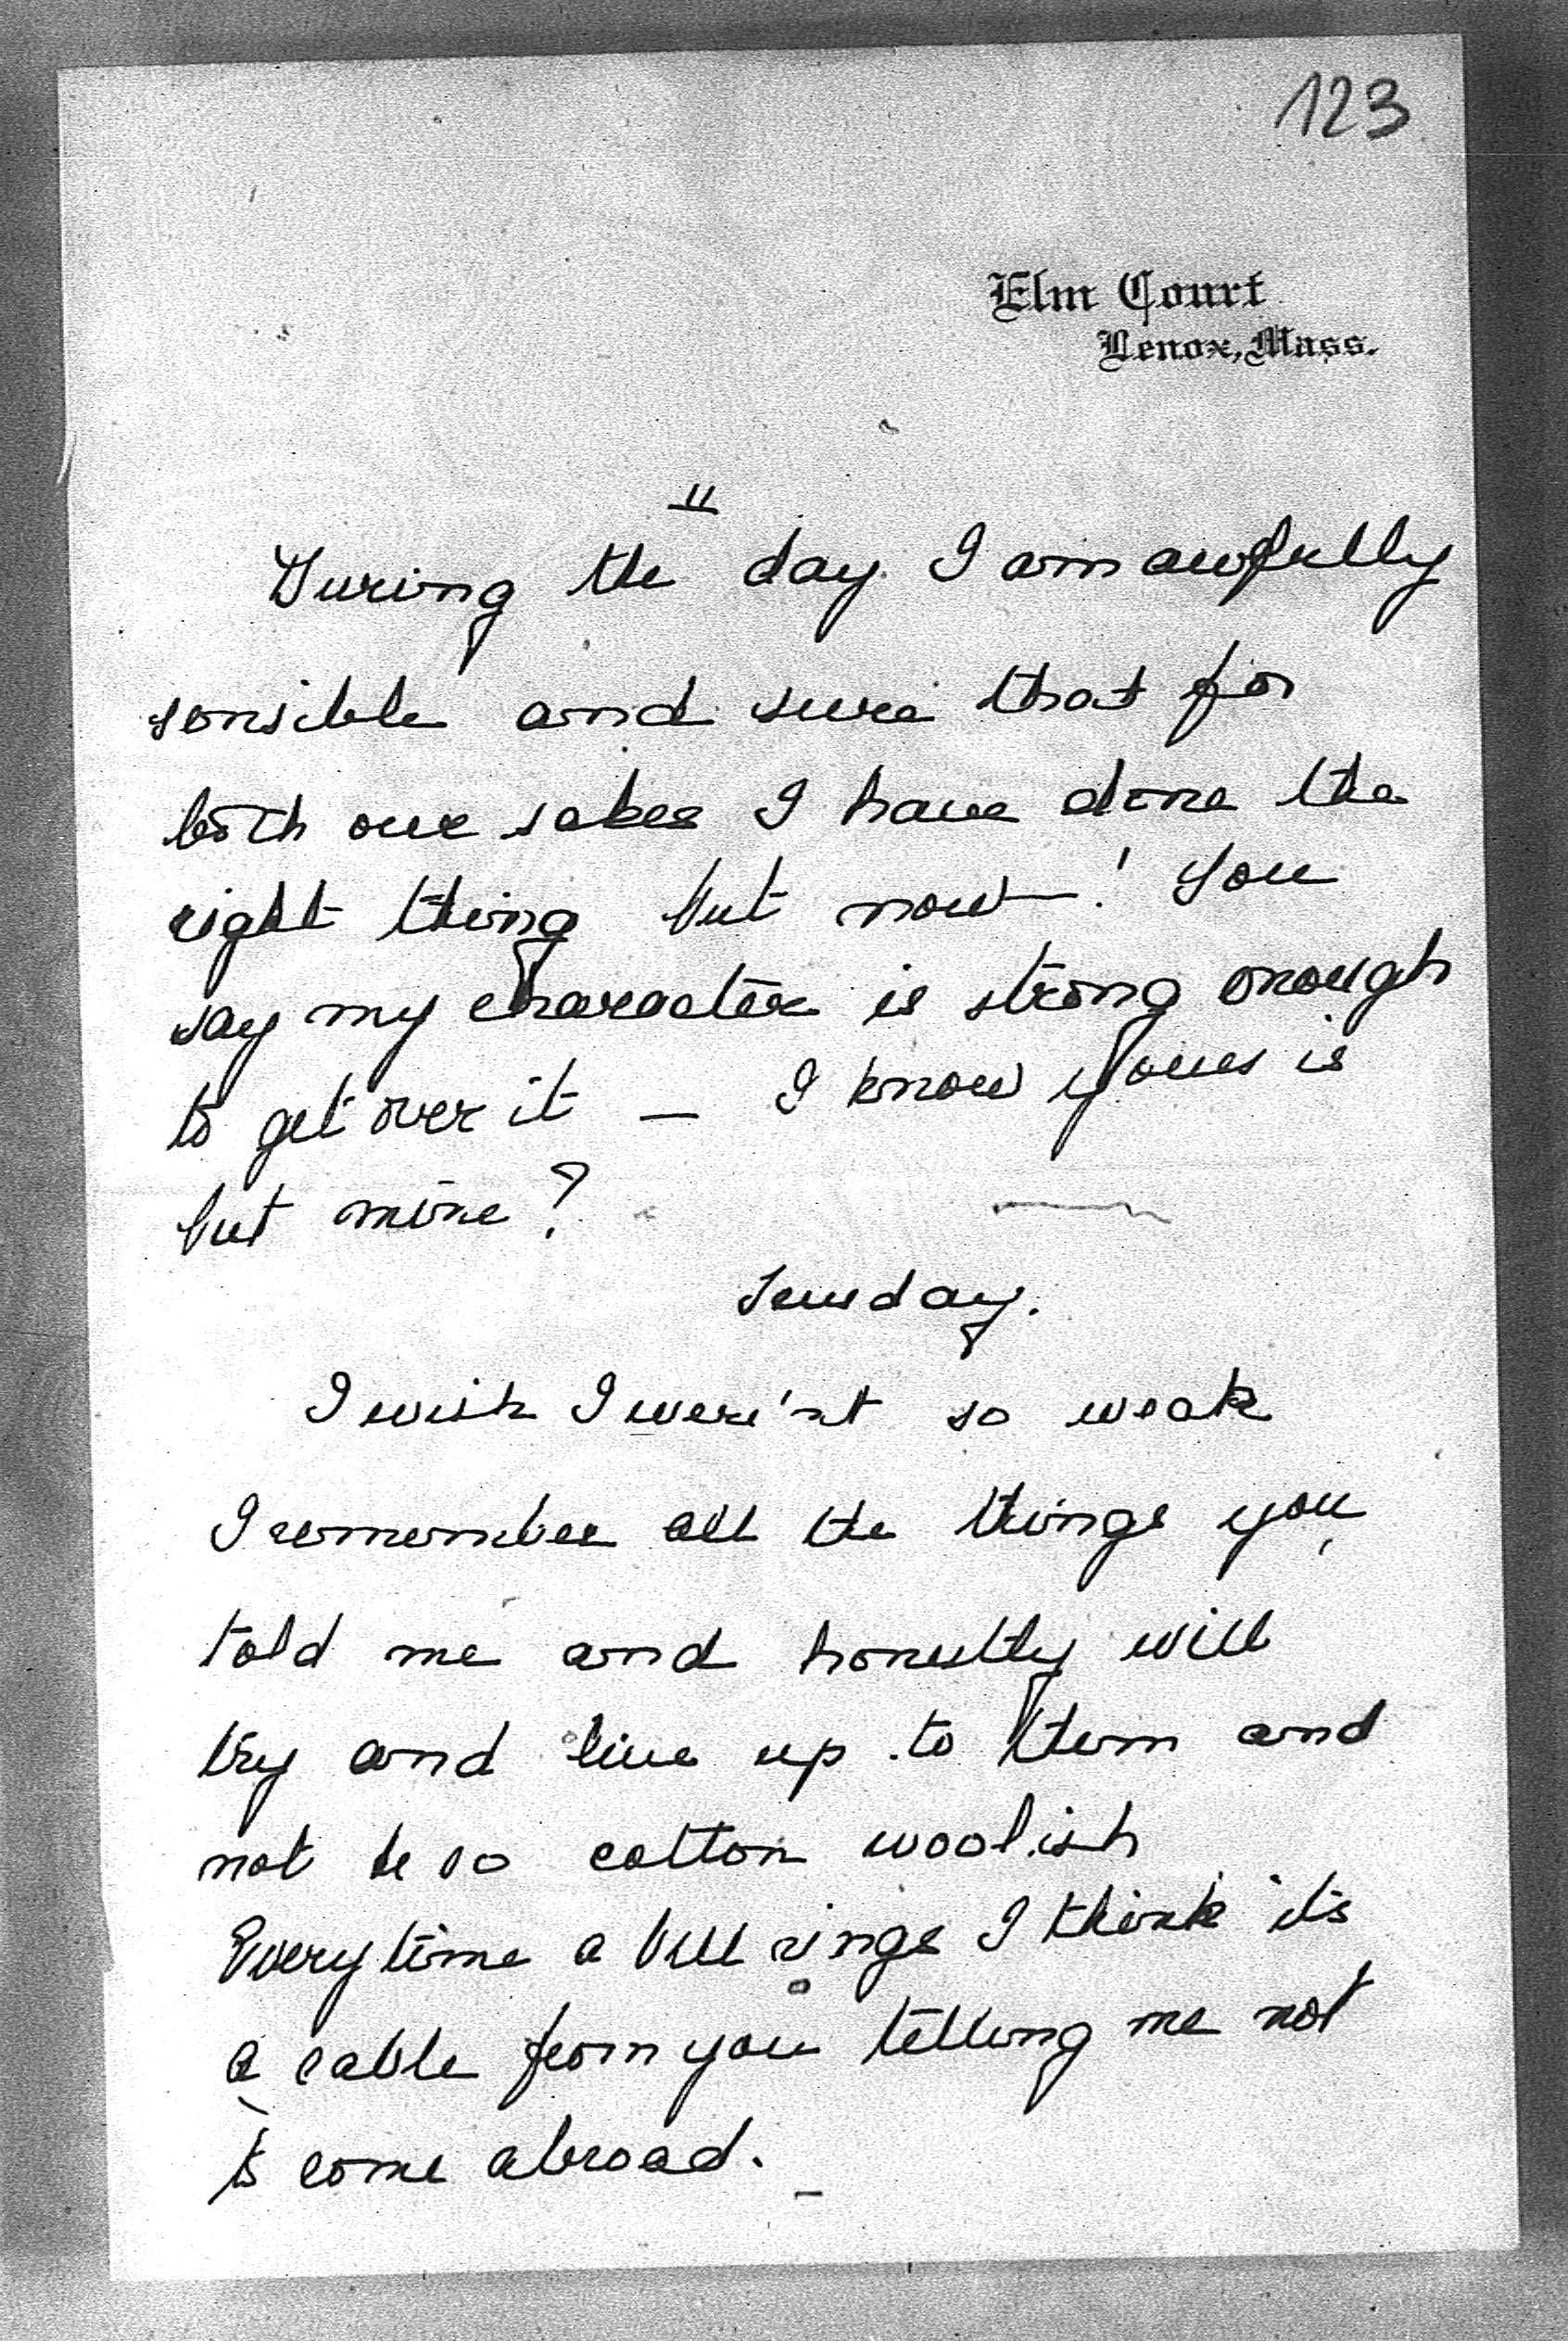 123
Elm Court
Lenox, Mass.
II
During the day I am awfully
sensible and sure that for
both our sakes I have done the
right thing but now—! You
say my character is strong enough
to get over it — I know yours is
but mine?
Sunday.
I wish I were'nt so weak
I remember all the things you
told me and honestly will
try and live up to them and
not be so cotton woolish
Everytime a bell rings I think it's
a cable from you telling me not
to come abroad.